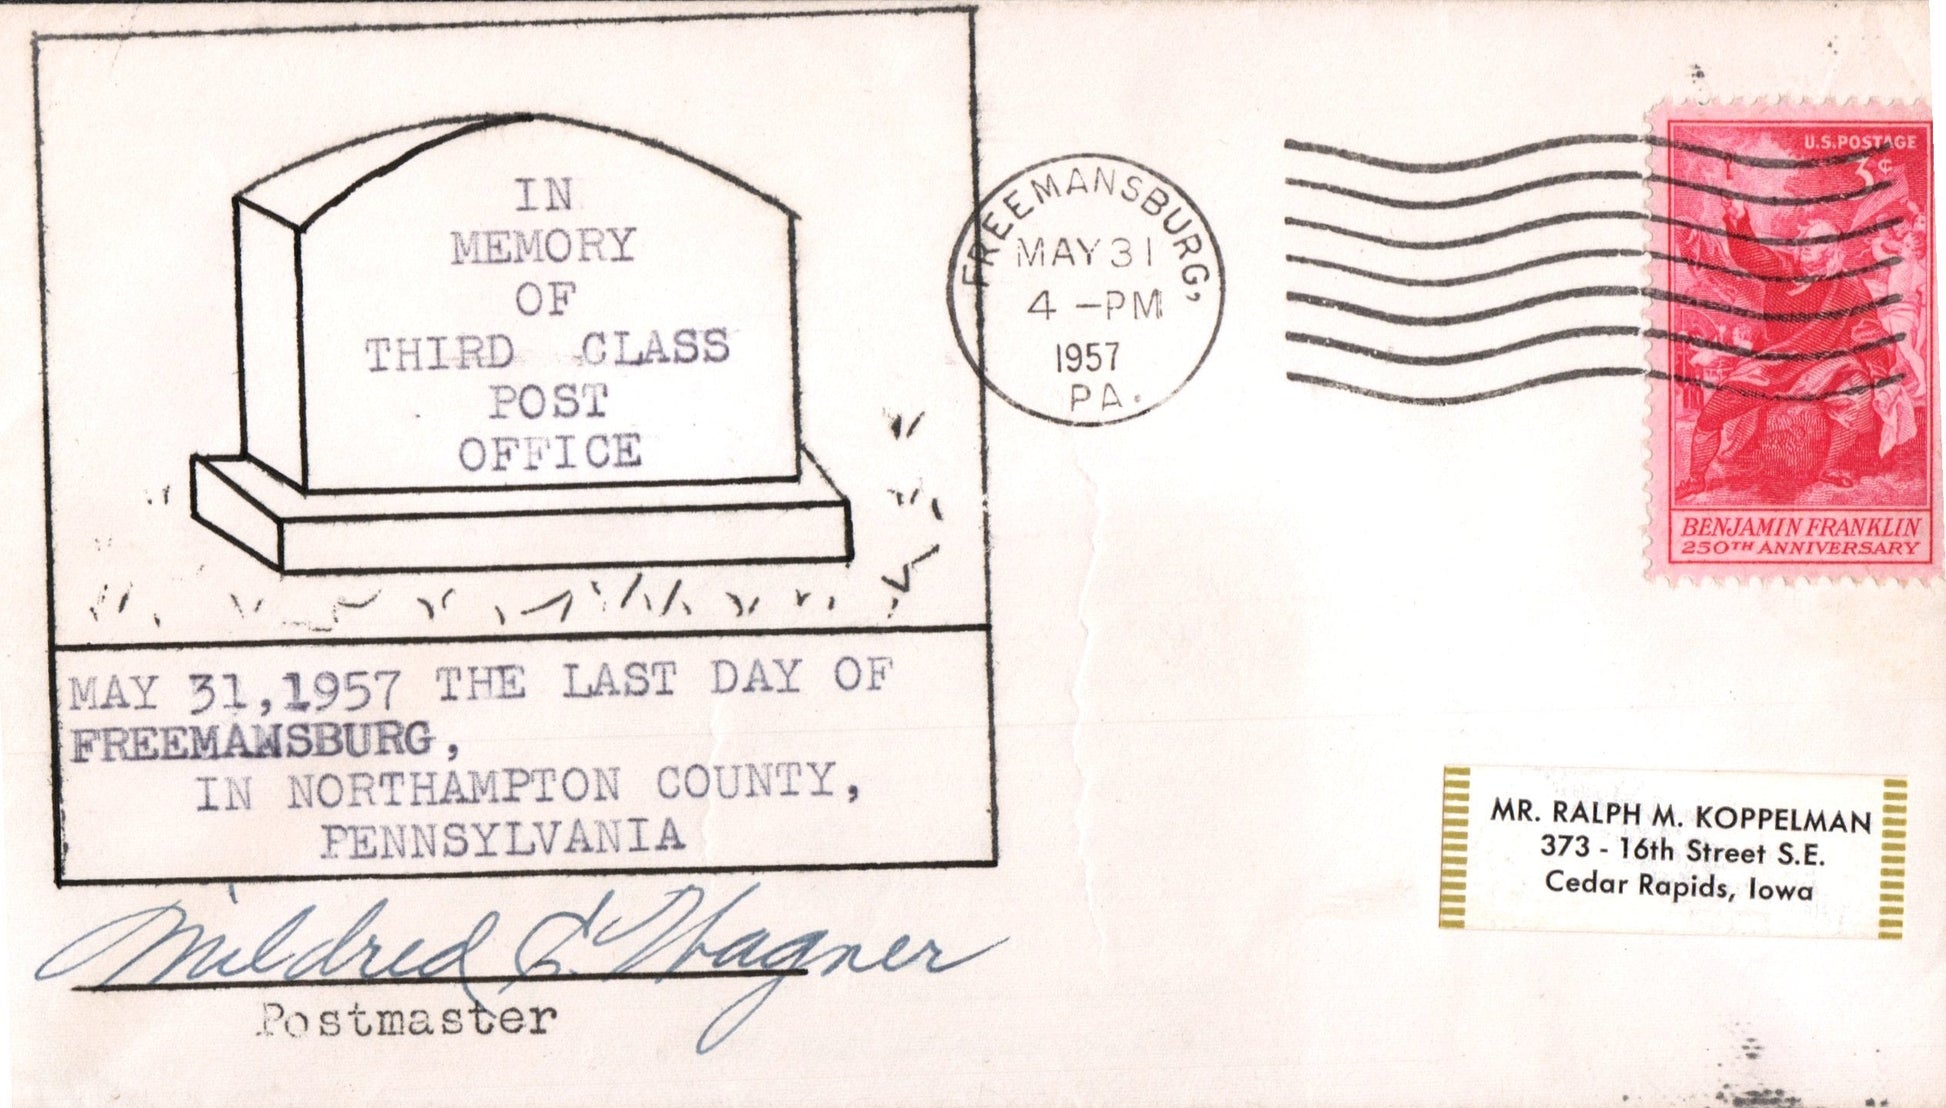 IN
MEMORY
OF
THIRD CLASS
POST
OFFICE
MAY 31,1957 THE LAST DAY OF
FREEMANSBURG,
IN NORTHAMPTON COUNTY,
PENNSYLVANIA
Mildred E. Wagner
Postmaster
FREEMANSBURG,
MAY 31
4 -PM
1957
PA.
U.S. POSTAGE
3¢
BENJAMIN FRANKLIN
250TH ANNIVERSARY
MR. RALPH M. KOPPELMAN
373 - 16th Street S.E.
Cedar Rapids, Iowa